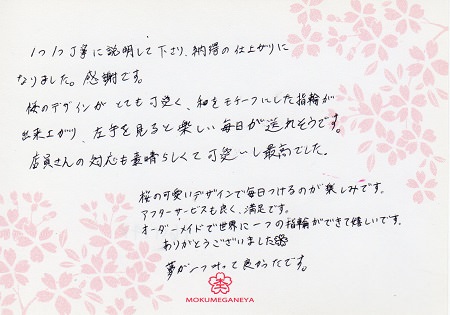 1つ1つ丁寧に説明して下さり、納得の仕上がりに
なりました。感謝です。
桜のデザインが とても可愛く、和をモチーフにした指輪が
出来上がり、左手を見ると楽しい毎日が送れそうです。
店員さんの対応も素晴らしくて可愛いし最高でした。
桜の可愛いデザインで毎日つけるのが楽しみです。
アフターサービスも良く、満足です。
オーダーメイドで世界に一つの指輪ができて嬉しいです。
ありがとうございました
夢が一つ叶って良かったです。
MOKUMEGANEYA